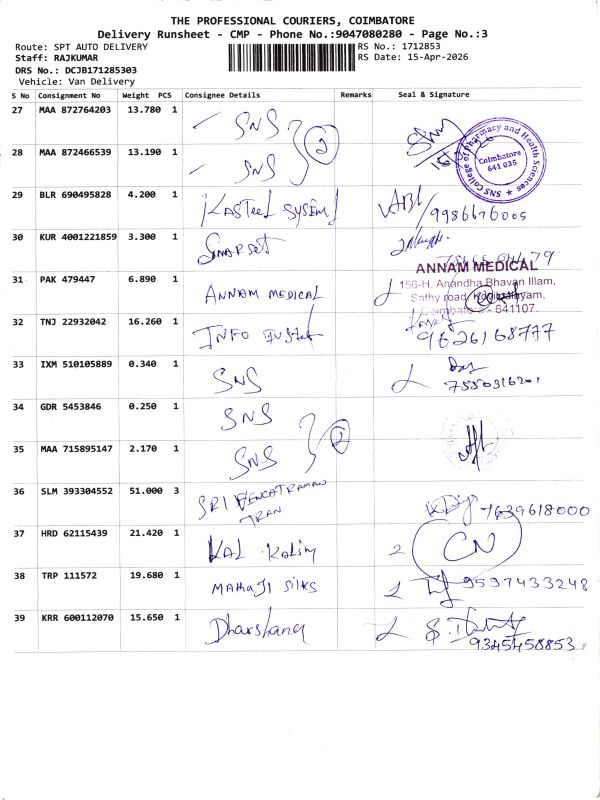 THE PROFESSIONAL COURIERS, COIMBATORE
Delivery Runsheet - CMP - Phone No.:9047080280 - Page No.:3
Route: SPT AUTO DELIVERY RS No.: 1712853
Staff: RAJKUMAR RS Date: 15-Apr-2026
DRS No.: DCJB171285303
Vehicle: Van Delivery
S No Consignment No Weight PCS Consignee Details Remarks Seal & Signature
27 MAA 872764203 13.780 1 SNS
28 MAA 872466539 13.190 1 SNS 2
SNS College of Pharmacy and Health Sciences
Coimbatore
641 035
29 BLR 690495828 4.200 1 KASTEEL SYSTEM 9986676005
30 KUR 4001221859 3.300 1
31 PAK 479447 6.890 1 ANNAM MEDICAL
ANNAM MEDICAL
156-H, Anandha Bhavan Illam,
Sathy road,
Coimbatore - 641107.
32 TNJ 22932042 16.260 1 INFO 9626168777
33 IXM 510105889 0.340 1 SNS 7550316201
34 GDR 5453846 0.250 1 SNS
35 MAA 715895147 2.170 1 SNS 2
36 SLM 393304552 51.000 3 SRI VENCATRAMAN 7639618000
TRAN
37 HRD 62115439 21.420 1 KAL CN
38 TRP 111572 19.680 1 MAHAJI SILKS 9597433248
39 KRR 600112070 15.650 1 Dharshana
9345458853